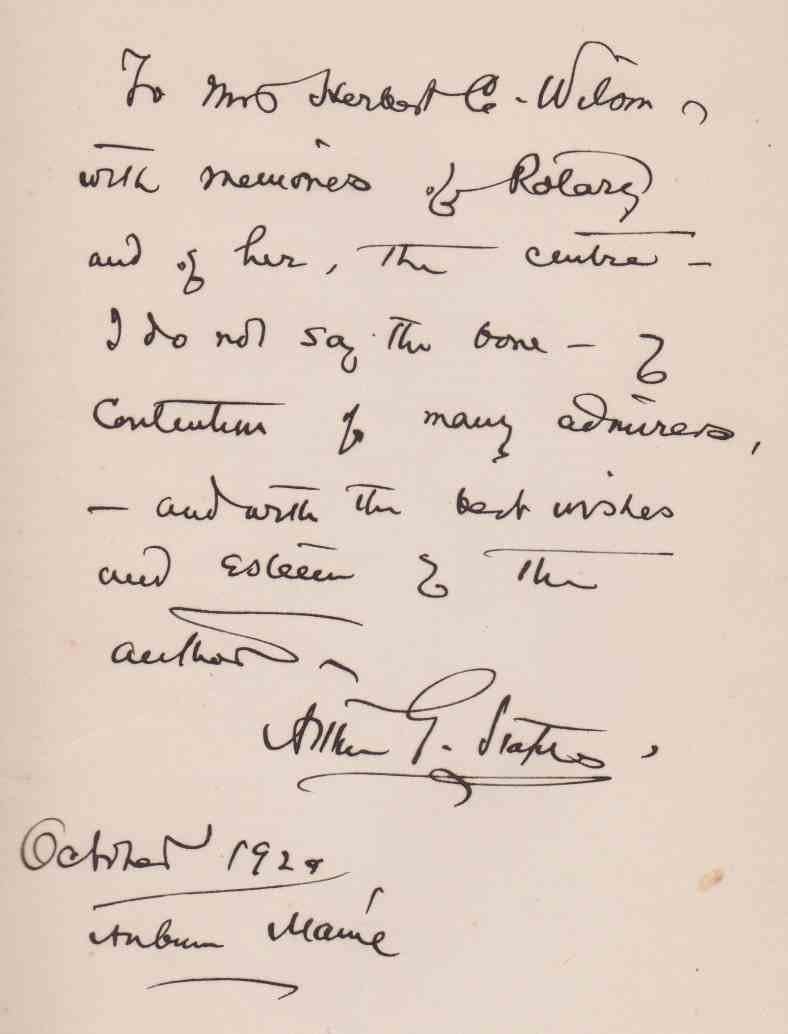 To Mrs Herbert C. Wilson,
with memories of Rotary
and of her, the centre –
I do not say the bone – of
Contention of many admirers,
– and with the best wishes
and esteem of the
author –
Arthur G. Staples.
October 192
Auburn Maine